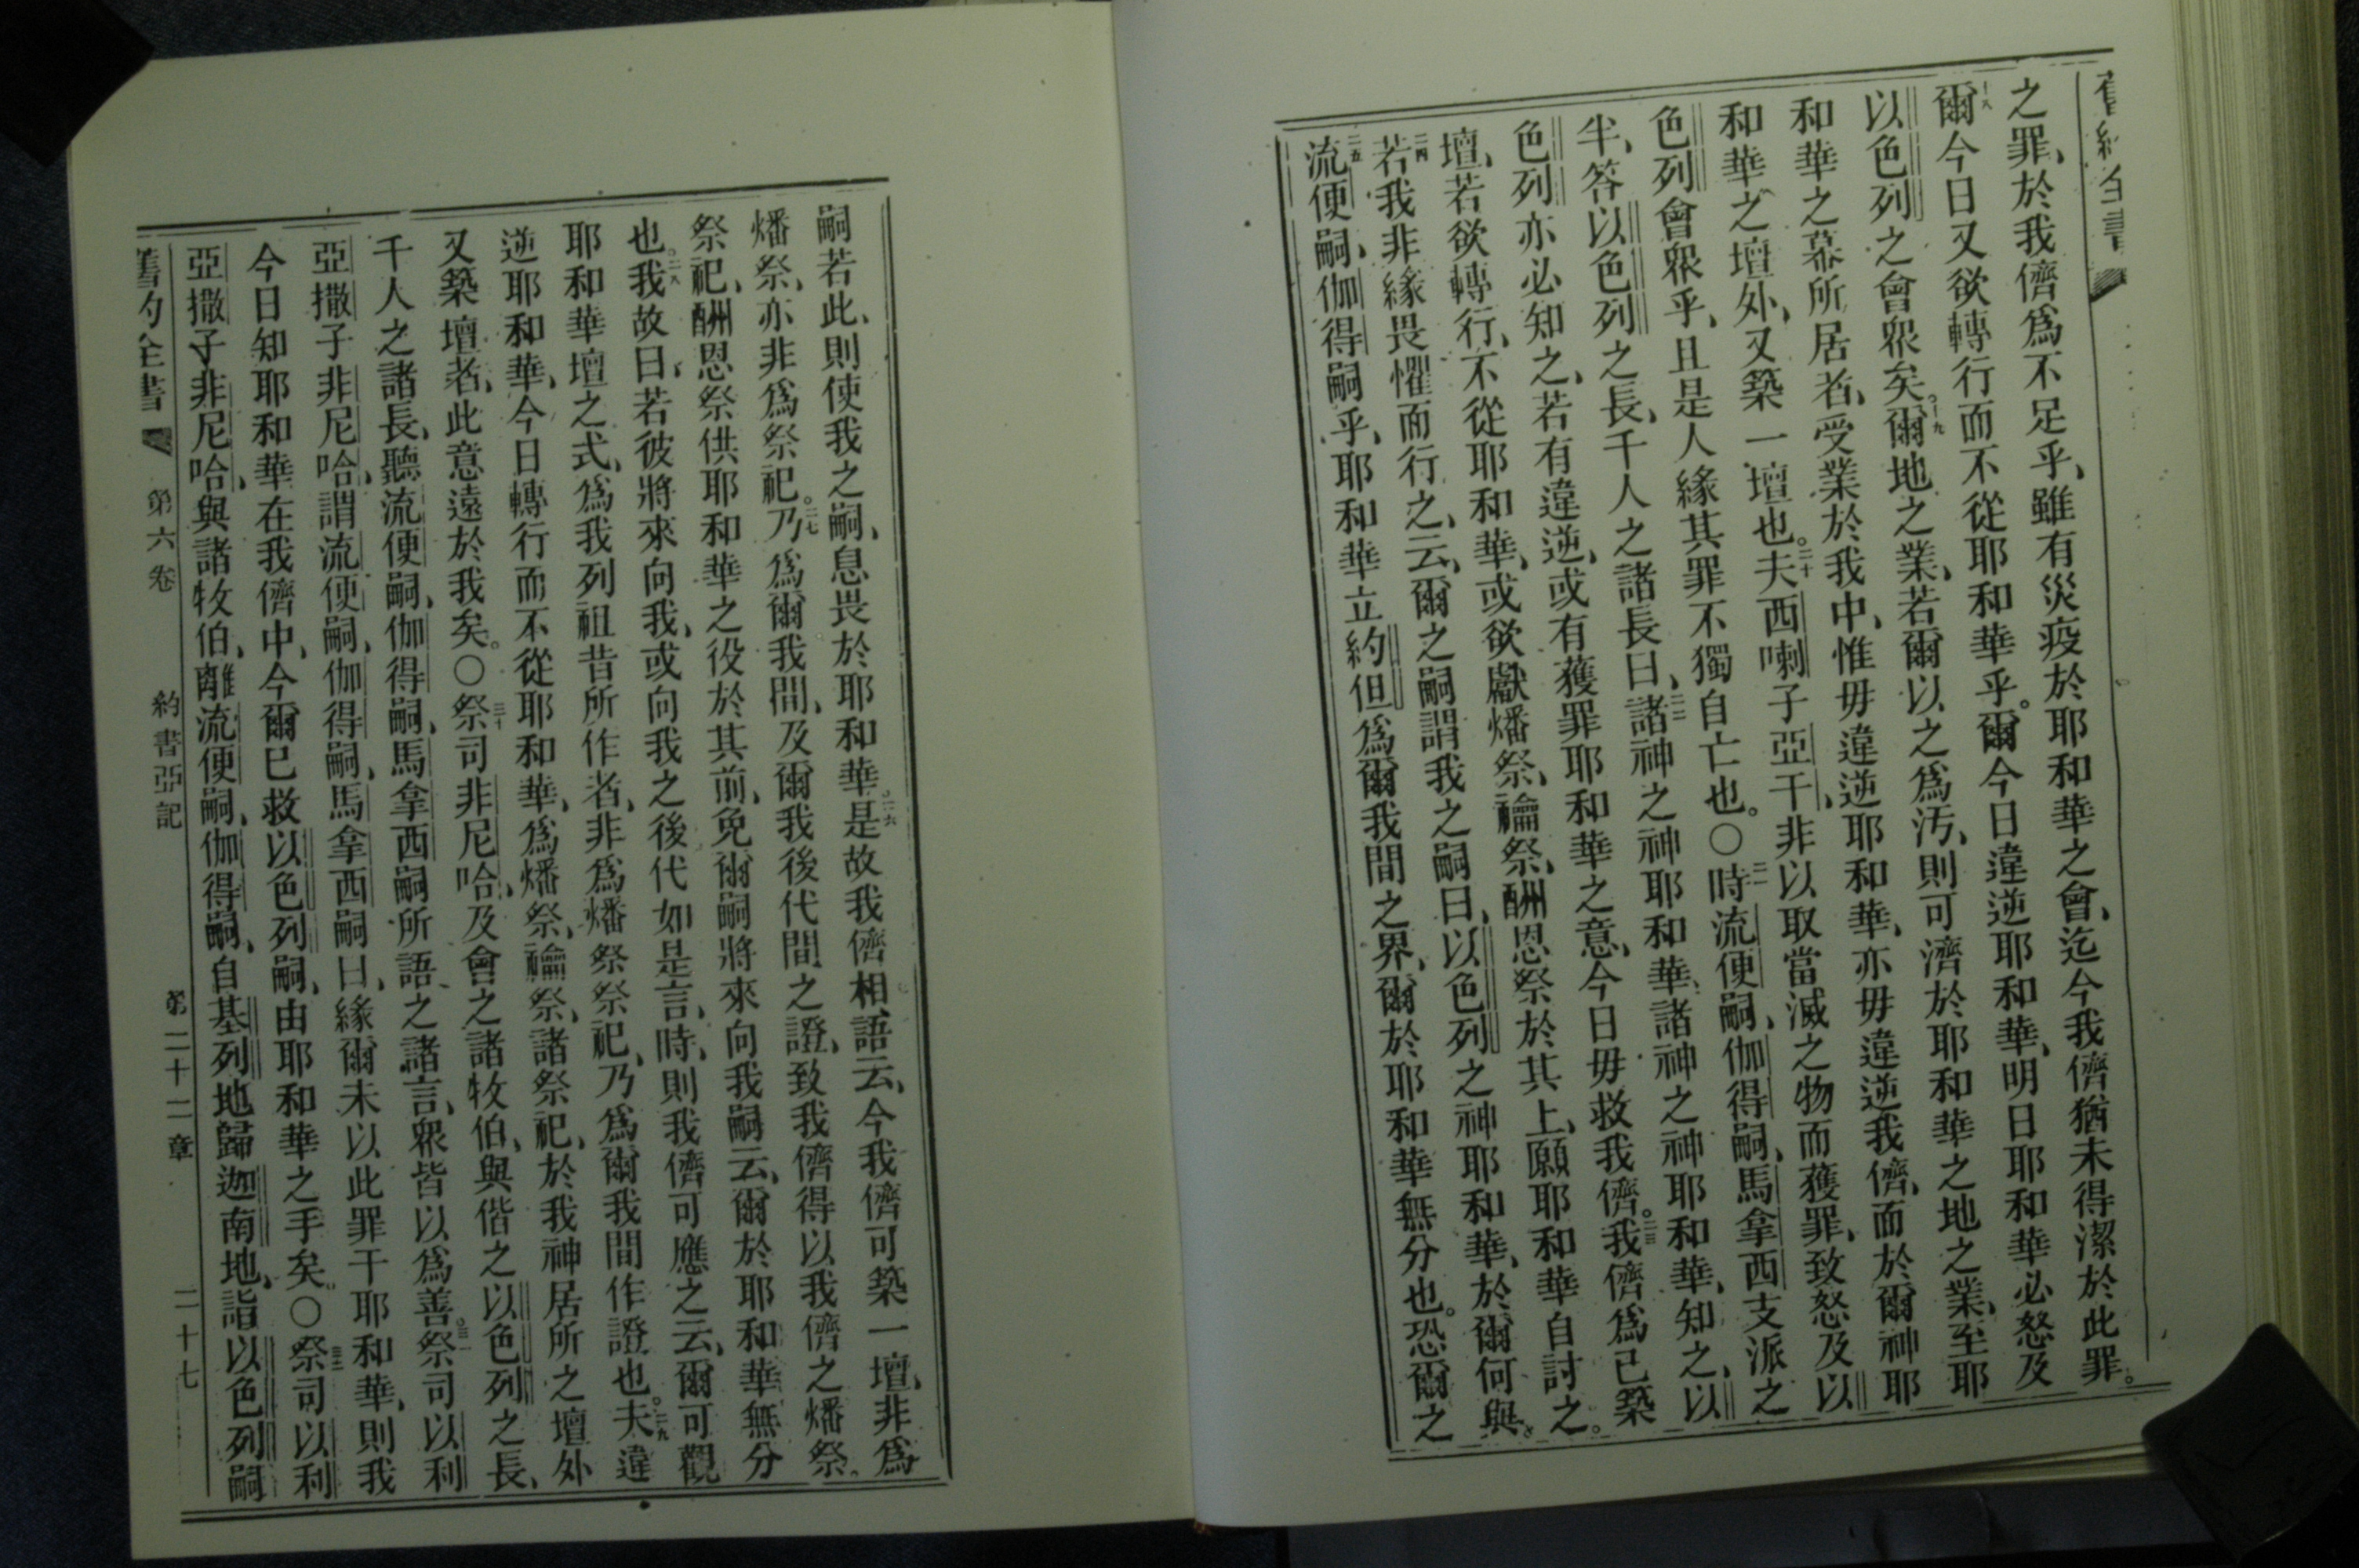 舊約全書
之罪、於我儕爲不足乎、雖有災疫於耶和華之會、迄今我儕猶未得潔於此罪。
十八爾今日又欲轉行而不從耶和華乎。爾今日違逆耶和華、明日耶和華必怒及
以色列之會眾矣。十九爾地之業、若爾以之爲汚、則可濟於耶和華之地之業、至耶
和華之幕所居者、受業於我中、惟毋違逆耶和華、亦毋違逆我儕、而於爾神耶
和華之壇外、又築一壇也。二十夫西喇子亞干、非以取當滅之物而獲罪、致怒及以
色列會眾乎、且是人緣其罪不獨自亡也。○二一時流便嗣、伽得嗣、馬拿西支派之
半、答以色列之長、千人之諸長曰、二二諸神之神耶和華、諸神之神耶和華、知之、以
色列亦必知之、若有違逆、或有獲罪耶和華之意、今日毋救我儕。二三我儕爲已築
壇、若欲轉行、不從耶和華、或欲獻燔祭、禴祭、酬恩祭於其上、願耶和華自討之。
二四若我非緣畏懼而行之、云、爾之嗣謂我之嗣曰、以色列之神耶和華、於爾何與。
二五流便嗣、伽得嗣乎、耶和華立約但爲爾我間之界、爾於耶和華無分也。恐爾之
嗣若此、則使我之嗣、息畏於耶和華。二六是故我儕相語云、今我儕可築一壇、非爲
燔祭、亦非爲祭祀。二七乃爲爾我間、及爾我後代間之證、致我儕得以我儕之燔祭。
祭祀、酬恩祭供耶和華之役於其前、免爾嗣將來向我嗣云、爾於耶和華無分
也。二八我故曰、若彼將來向我、或向我之後代如是言、時、則我儕可應之云、爾可觀
耶和華壇之式、爲我列祖昔所作者、非爲燔祭祭祀、乃爲爾我間作證也。二九夫違
逆耶和華、今日轉行而不從耶和華、爲燔祭、禴祭、諸祭祀、於我神居所之壇外
又築壇者、此意遠於我矣。○三十祭司非尼哈、及會之諸牧伯、與偕之以色列之長、
千人之諸長、聽流便嗣、伽得嗣、馬拿西嗣所語之諸言、眾皆以爲善。三一祭司以利
亞撒子非尼哈、謂流便嗣、伽得嗣、馬拿西嗣曰、緣爾未以此罪干耶和華、則我
今日知耶和華在我儕中、今爾已救以色列嗣、由耶和華之手矣。○三二祭司以利
亞撒子非尼哈、與諸牧伯、離流便嗣、伽得嗣、自基列地歸迦南地、詣以色列嗣
舊約全書 第六卷 約書亞記 第二十二章 二十七